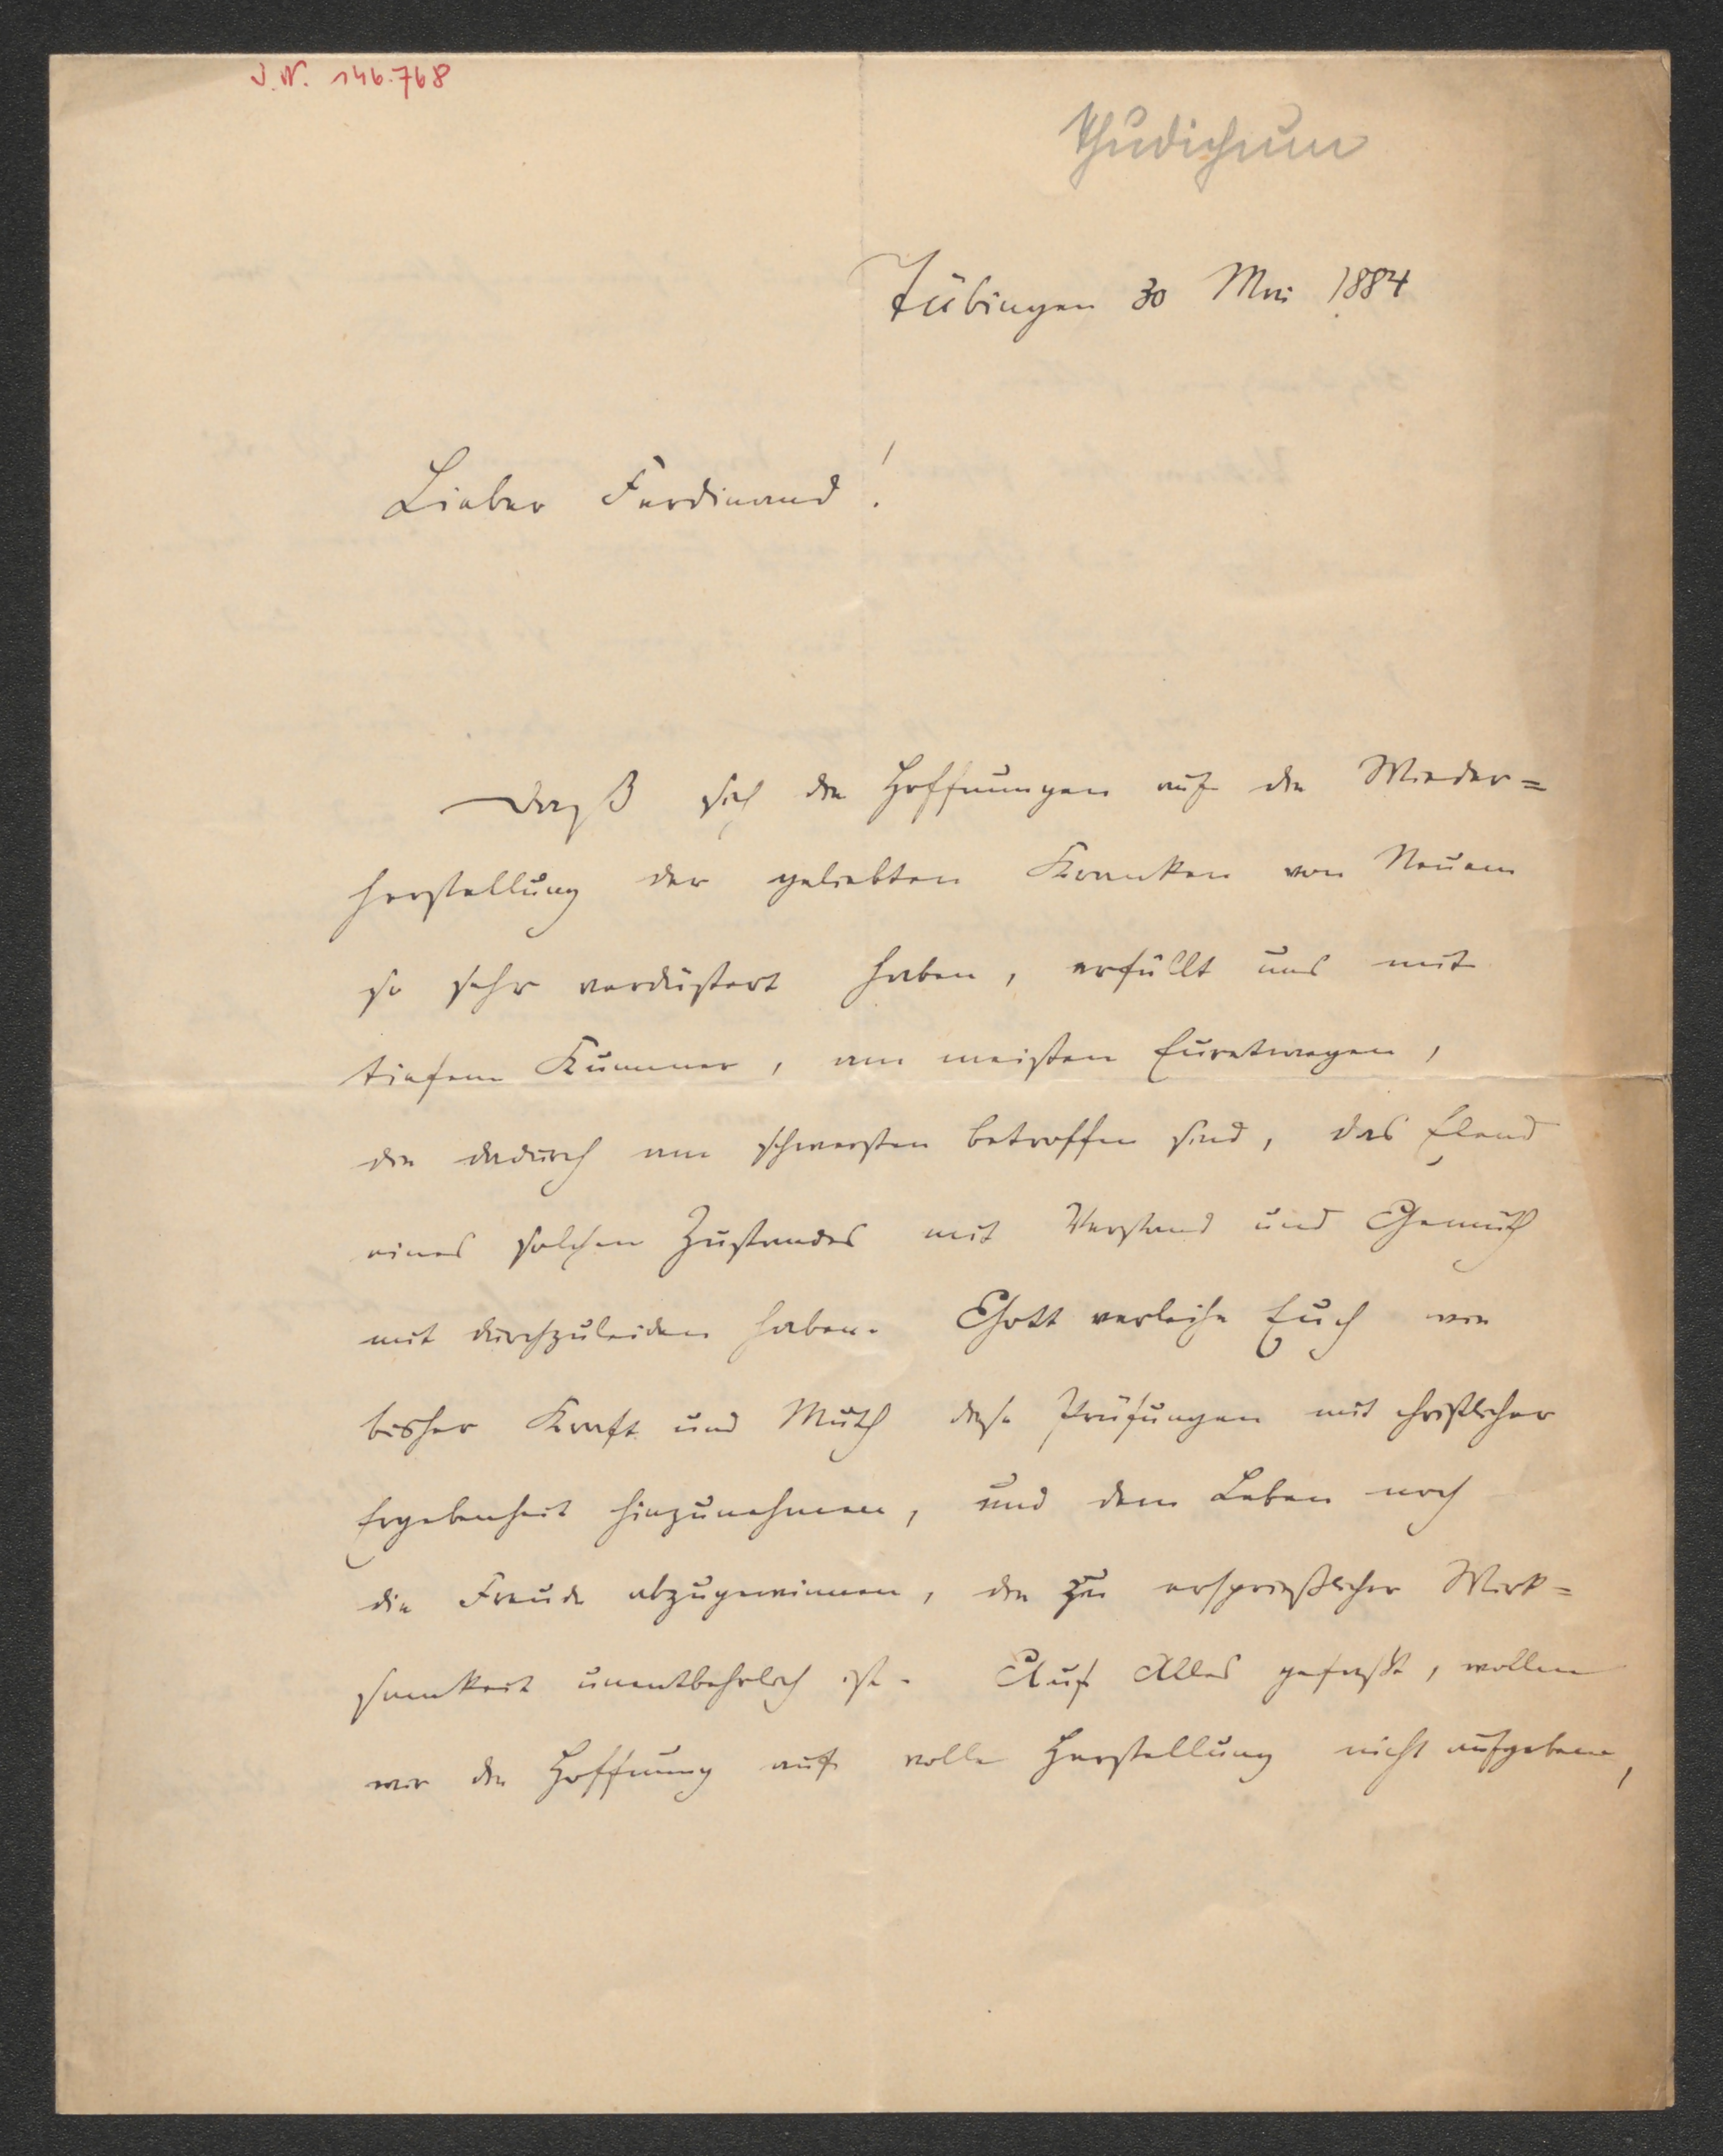 J.N. 146.768
Thudichum
Tübingen 30 Mai 1884
Lieber Ferdinand!
Daß sich die Hoffnungen auf die Wieder=
herstellung der geliebten Kranken von Neuem
so sehr verdüstert haben, erfüllt uns mit
tiefem Kummer, am meisten Euretwegen,
die dadurch am schwersten betroffen sind, das Elend
eines solchen Zustandes mit Verstand und Gemuth
mit durchzuleiden haben. Gott verleihe Euch wie
bisher Kraft und Muth diese Prüfungen mit christlicher
Ergebenheit hinzunehmen, und dem Leben noch
die Freude abzugewinnen, die zu ersprießlicher Wirk=
samkeit unentbehrlich ist. Auf Alles gefaßt, wollen
wir die Hoffnung auf volle Herstellung nicht aufgeben,